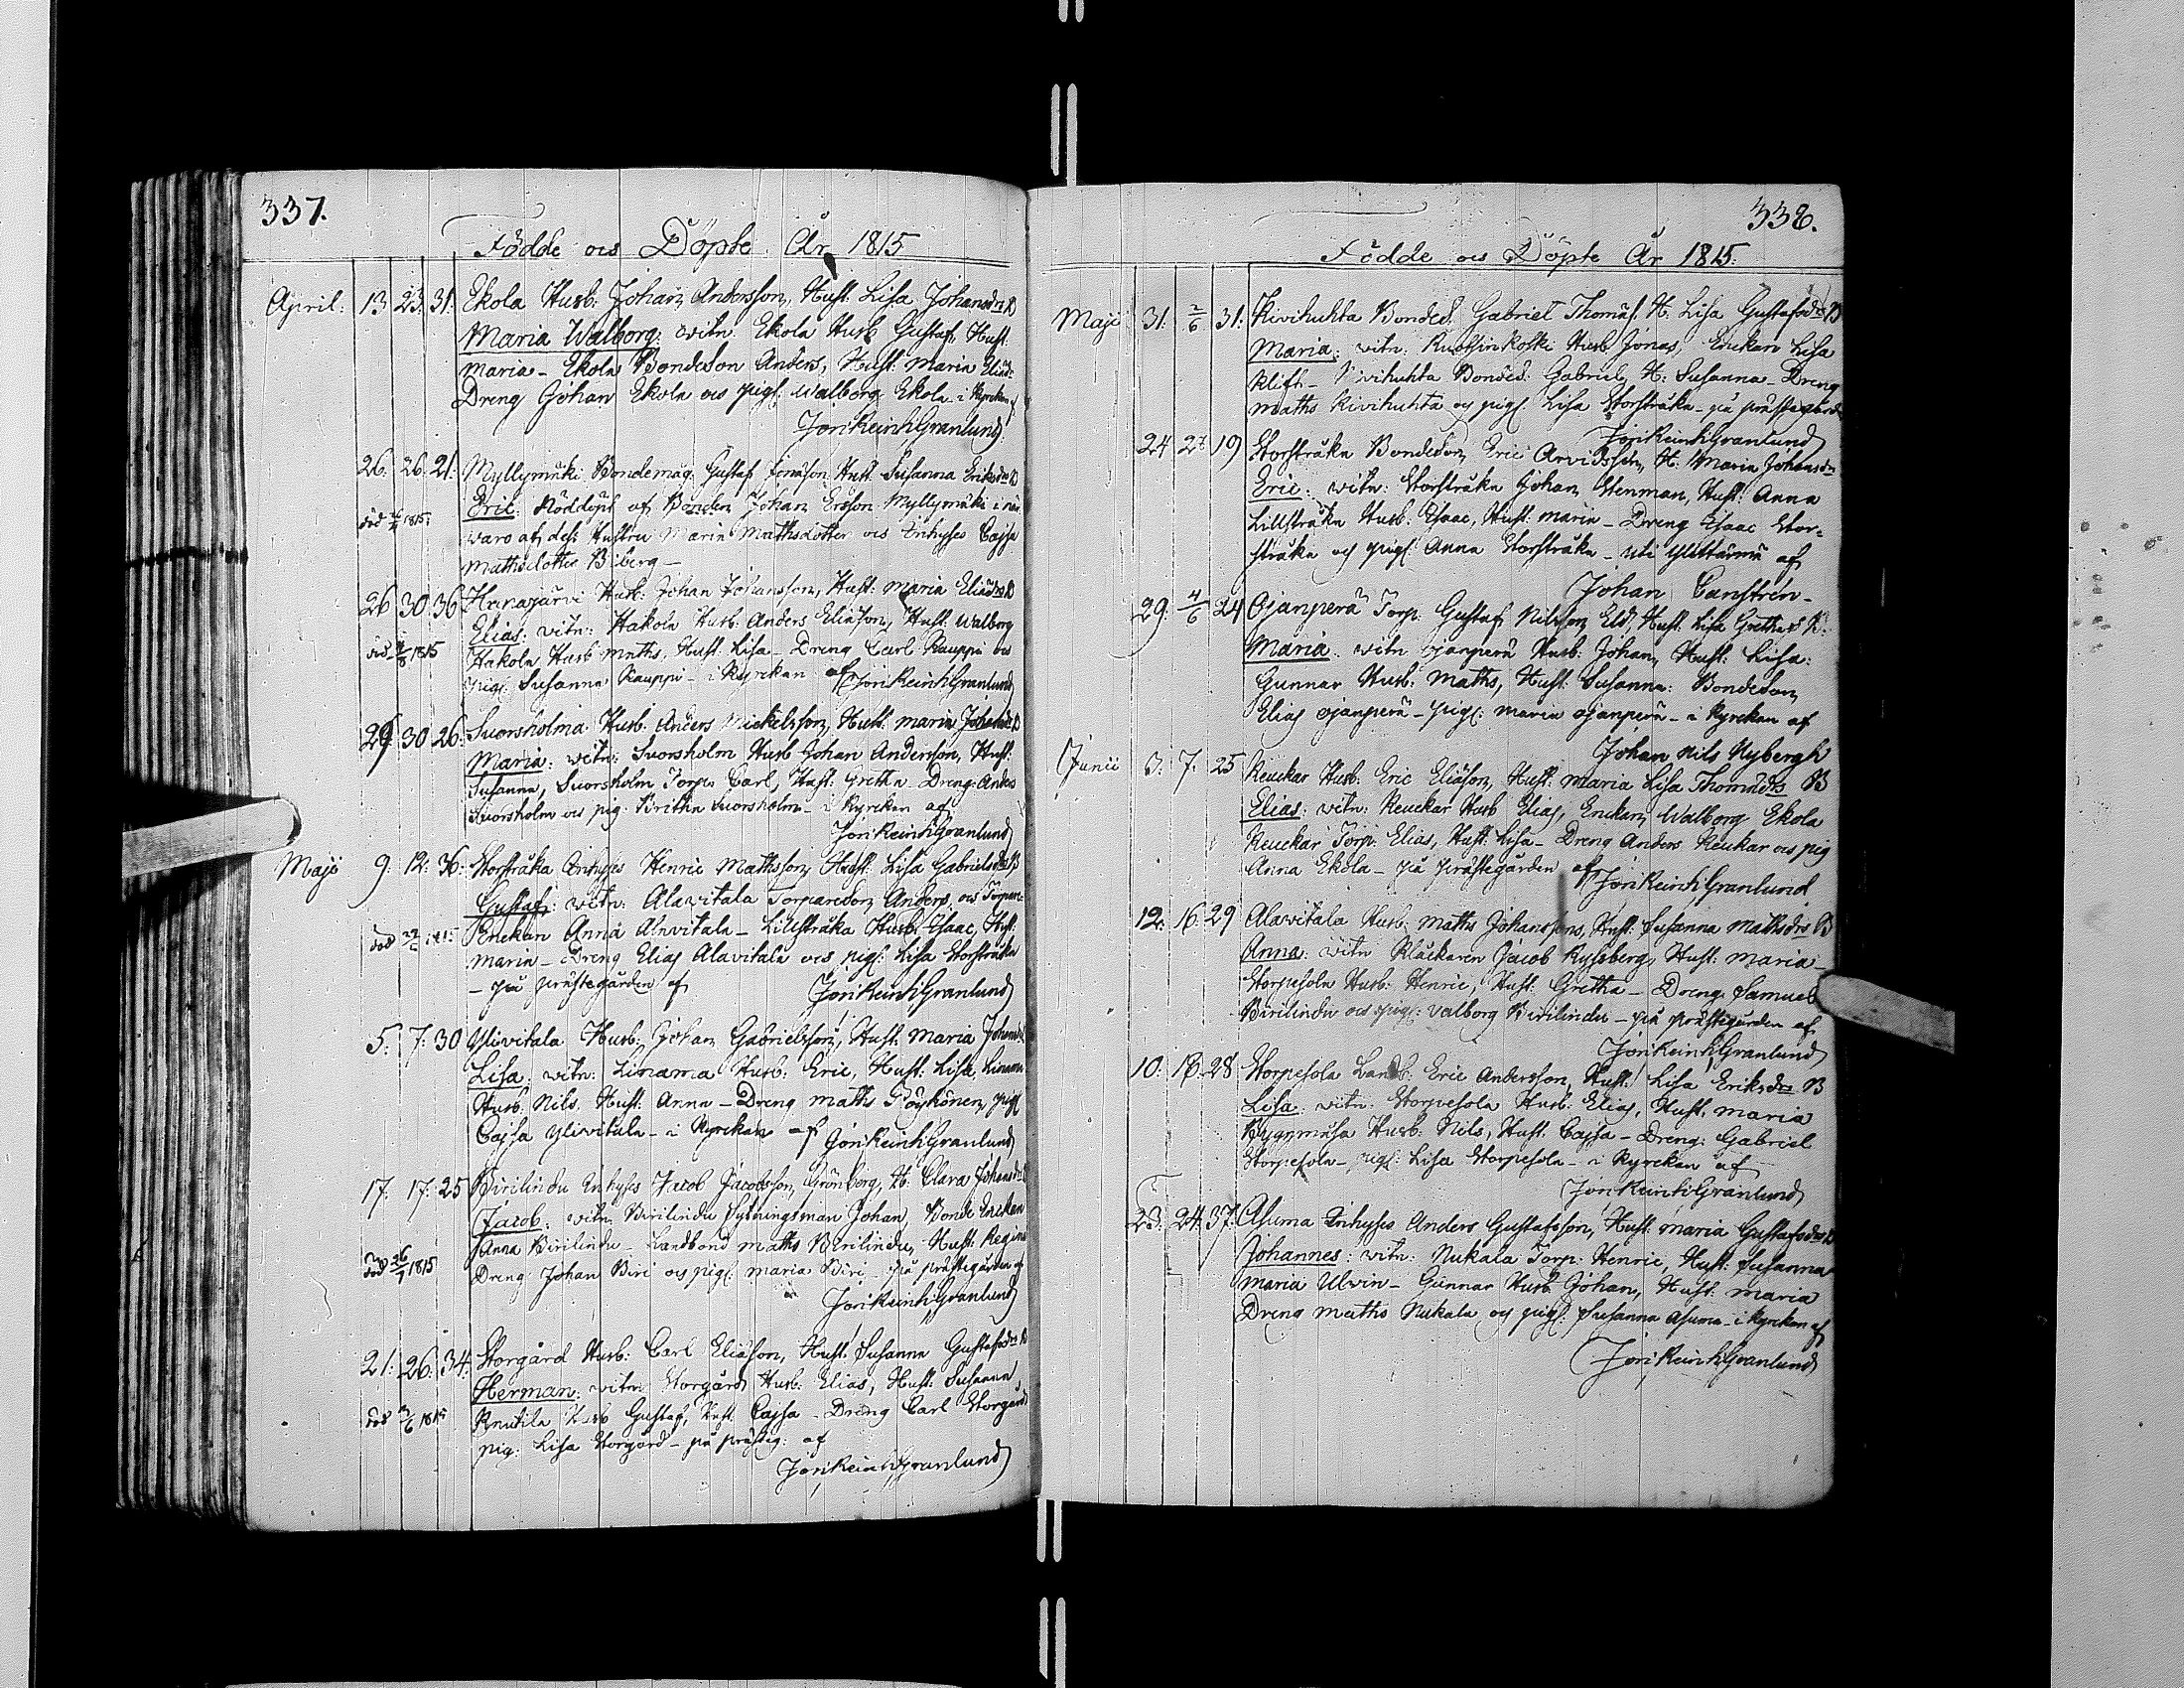 337.
Födde och Döpte År 1815
April: 13 23. 31: Ekola Husb: Johan Andersson, Hust: Lisa Johansdr B
Maria Walborg: witn: Ekola Husb Gustaf, Hust:
Maria - Ekola Bondeson Anders, Hust: Maria
Dreng Johan Ekola och pig: Walborg Ekola - i Kyrckan af
Jöri Reinh Granlund
26. 26. 21: Myllymäki Bondemåg: Gustaf Jonasson Hust: Susanna Eriksdr B
Eric: Nöddöpt af Bonden Johan Ersson Myllymäki i när
död 1815: waro af dess Hustru Maria Mathsdotter och Inhyses Cajsa
Mathsdotter Biberg -
26 30 36 Husb: Johan Johansson, Hust: Maria Eliædr B
Elias: witn: Hakola Husb: Anders Eliasson, Hust: Walborg
död 1815 Hakola Husb Maths, Hust: Lisa - Dreng Carl Rauppi och
pig: Susanna Rauppi - i Kyrckan af Jöri Reinh Granlund
29 30 26: Suorsholma Husb: Anders Mickelsson, Hust: Maria Johansdr B
Maria: witn: Suorsholm Husb Johan Andersson, Hust:
Susanna, Suorsholm Torp: Carl, Hust: Gretha Dreng: Anders
Suorsholm och pig: Biritha Suorsholm - i Kyrckan af
Jöri Reinh Granlund
Maji 9: 12: 36: Storstråka Inhyses Henric Mathsson, Hust: Lisa Gabrielsdr B
Gustaf: witn: Alavitala Torpareson Anders, och Torpare
död 1815 Enckan Anna Alavitala - Lillstråka Husb: Esaac, Hust:
Maria - Dreng Elias Alavitala och pig: Lisa Storstråka
- på prästegården af Jöri Reinh Granlund
5: 7: 30 Ylivitala Husb: Johan Gabrielsson, Hust: Maria
Lisa: witn: Linama Husb: Eric, Hust: Lisa, Linama
Husb: Nils, Hust: Anna - Dreng Maths Pöykönen, pig:
Cajsa Ylivitala - i Kyrckan af Jöri Reinh Granlund
17: 17: 25 Birilindu Inhyses Jacob Jacobsson Grönberg, H: Clara Johansdr
Jacob: witn: Birilindu Sytningsman Johan, Bonde Enckan
Anna Birilindu - Landbond Maths Birilindu, Hust: Regina
död 26/7 1815 Dreng Johan Biri och pig: Maria Biri - på prästegården af
Jöri Reinh Granlund
21: 26: 34: Storgård Husb: Carl Eliasson, Hust: Susanna Gustafsdr B
Herman: witn: Storgård Husb: Elias, Hust: Susanna,
död 1815 Knutila Husb Gustaf, Hust: Cajsa - Dreng Carl Storgård
pig: Lisa Storgård - på prästeg: af
Jöri Reinh Granlund
338.
Födde och Döpte År 1815:
Maji 31: 2/6 31: Kivihuhta Bondes: Gabriel Thomas: H: Lisa Gustafsdr B
Maria: witn: Ruotsinkoski Husb Jonas, Enckan Lisa
Klift - Kivihuhta Bondes: Gabriel, H: Susanna - Dreng
Maths Kivihuhta och pig: Lisa Storstråka - på prästegården
Jöri Reinh Granlund
24 27 19 Storstråka Bondeson Eric Arvidsson, H: Maria Johansdr
Eric: witn: Storstråka Johan Stenman, Hust: Anna
Lillstråka Husb: Esaac, Hust: Maria - Dreng Esaac Stor-
stråka och pig: Anna Storstråka - uti Ylistarna af
Johan Canstrén -
29: 4/6 24 Ojanperä Torp: Gustaf Nilsson Eld, Hust: Lisa Grethas B:
Maria: witn: Ojanperä Husb: Johan, Hust: Lisa:
Gunnar Husb: Maths, Hust: Susanna: Bondeson
Elias Ojanperä - pig: Maria Ojanperä - i Kyrckan af
Johan Nils Nybergh
Junii 3: 7: 25 Reuckar Husb: Eric Eliasson, Hust: Maria Lisa Thomædrs B
Elias: witn: Reuckar Husb Elias, Enckan Walborg Ekola
Reuckar Torp: Elias, Hust: Lisa - Dreng Anders Reuckar och pig
Anna Ekola - på prästegården af Jöri Reinh Granlund
12: 16: 29 Alavitala Husb: Maths Johansson, Hust: Susanna Mathsdrs B
Anna: witn: Klåckaren Jacob Rytsberg, Hust: Maria -
Storpesola Husb: Henric, Hust: Gretha - Dreng Samuel
Birilindu och pig: Valborg Birilindu - på prästegården af
Jöri Reinh Granlund
10: 18: 28 Storpesola Landb: Eric Andersson, Hust: Lisa Eriksdrs B
Lisa: witn: Storpesola Husb: Elias, Hust: Maria
Husb: Nils, Hust: Cajsa - Dreng: Gabriel
Storpesola - pig: Lisa Storpesola - i Kyrckan af
Jöri Reinh Granlund
23: 24: 37: Asuma Inhyses Anders Gustafsson, Hust: Maria Gustafsdrs B
Johannes: witn: Nukala Torp: Henric, Hust: Susanna
Maria Ulvin - Gunnar Husb Johan, Hust: Maria
Dreng Maths Nukala och pig: Susanna Asuma - i Kyrckan af
Jöri Reinh Granlund